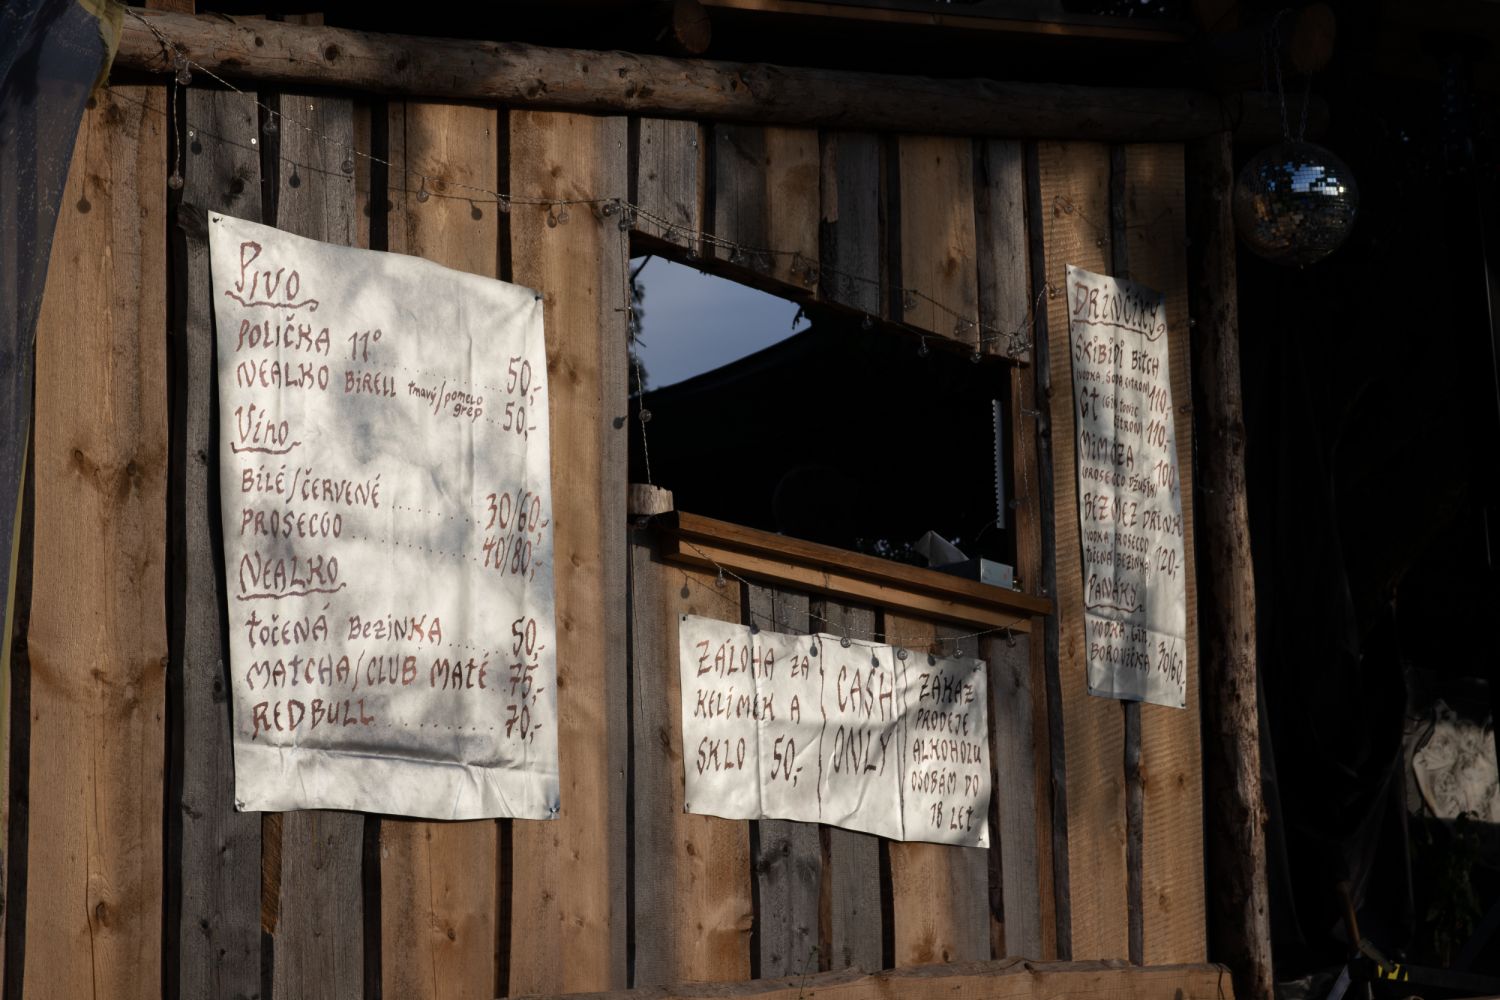 Pivo
POLIČKA 11°........50,-
NEALKO BIRELL tmavý/pomelo grep..50,-
Víno
BÍLÉ/ČERVENÉ........30/60,-
PROSECCO........40/80,-
NEALKO
točENÁ BEZINKA....50,-
MATCHA/CLUB MATÉ..75,-
REDBULL........70,-
ZÁLOHA ZA
KELÍMEK A
SKLO 50,-
CASH
ONLY
ZÁKAZ
PRODEJE
ALKOHOLU
OSOBÁM DO
18 LET
DRINČÍKY
SKIBIDI BITCH
(VODKA, SODA, CITRON) 110,-
GT (GIN, TONIC
CITRON) 110,-
MIMOZA
(PROSECCO DŽUSÍK) 100,-
BEZ MEZ DRINK
(VODKA, PROSECCO
točENÁ BEZINKA) 120,-
PANÁKY
VODKA, GIN,
BOROVIČKA 30/60,-